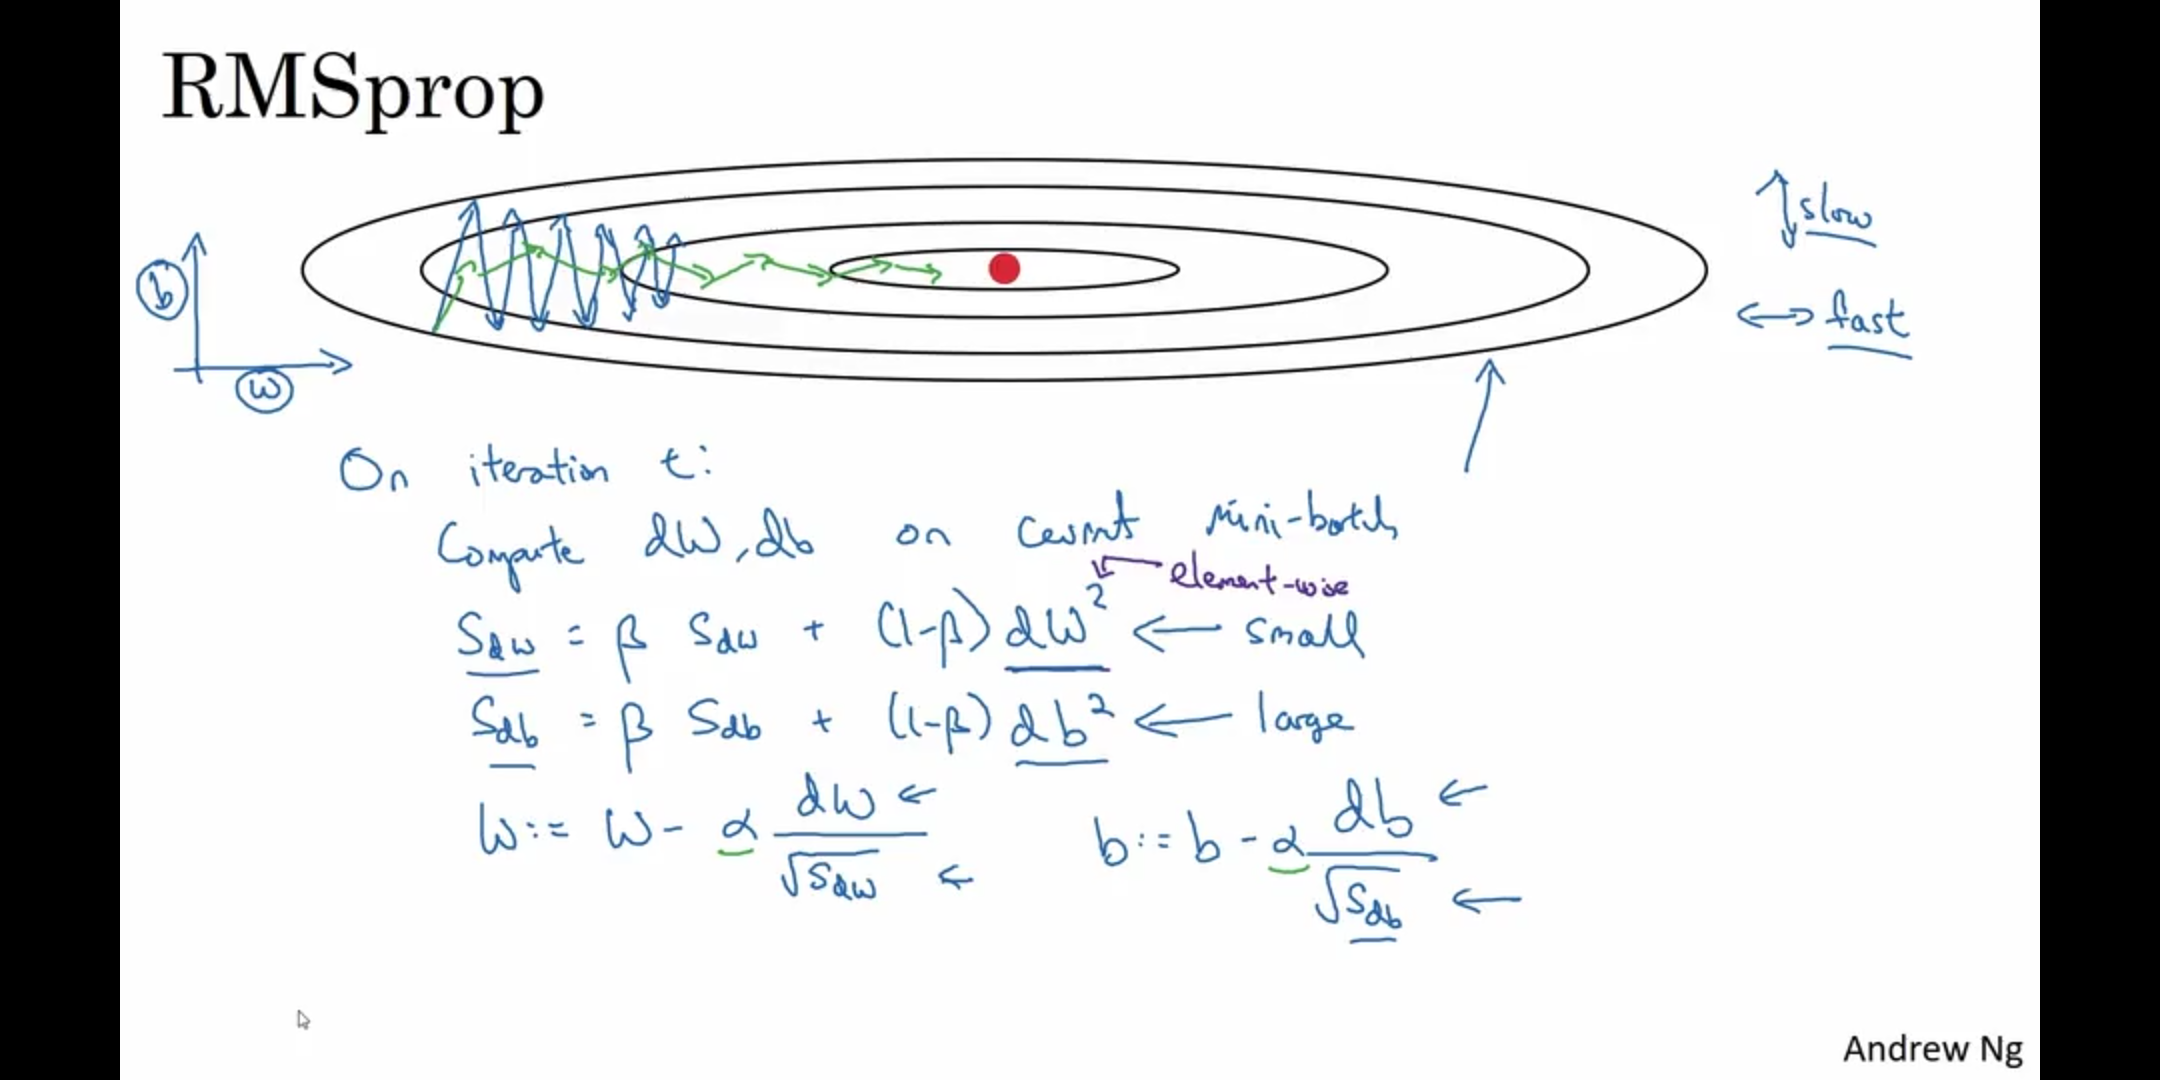 RMSprop
slow
b
fast
w
On iteration t:
Compute dW, db on current mini-batch
element-wise
Sdw = β Sdw + (1-β) dW² ← small
Sdb = β Sdb + (1-β) db² ← large
W := W - α dW/√Sdw ← ← b := b - α db/√Sdb ← ←
Andrew Ng